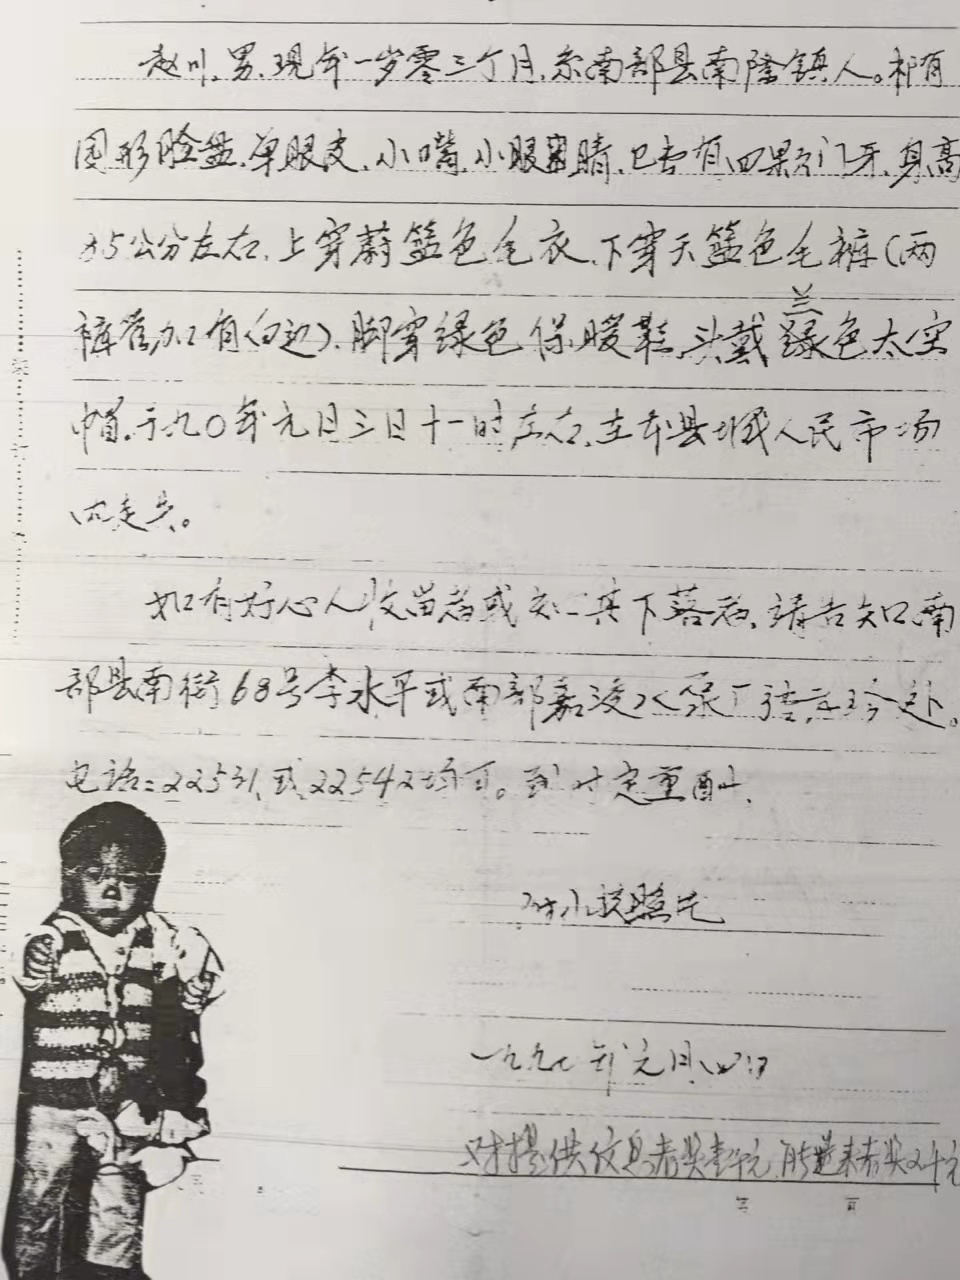 赵川,男,现年一岁零三个月,系南部县南隆镇人。相有
圆形脸盘,单眼皮,小嘴,小眼睛,已长有四颗门牙,身高
公分左右,上穿蔚篮色毛衣,下穿天篮色毛裤(两
裤管加有白边),脚穿绿色保暖鞋,头戴兰色太空
帽,于九〇年元月三日十一时左右,在本县城人民市场
内走失。
如有好心人收留者或知其下落者,请告知南
部县南街68号李水平或南部嘉凌水泵厂处。
电话:22531或22542均可。到时定重酬。
附小孩照片
年元月四日
对提供信息者奖壹千元,能送来者奖2千元